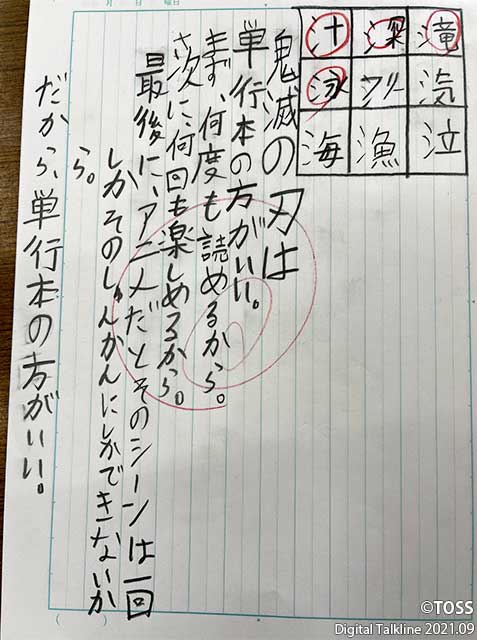 月 日 曜日
汁 深 滝
泳 フリー 汽
海 漁 泣
鬼滅の刃は
単行本の方がいい。
まず、何度も読めるから。
次に、何回も楽しめるから。
最後に、アニメだとそのシーンは一回
しかそのしゅんかんにしかできないか
ら。
だから、単行本の方がいい。
©TOSS
Digital Talkline 2021.09